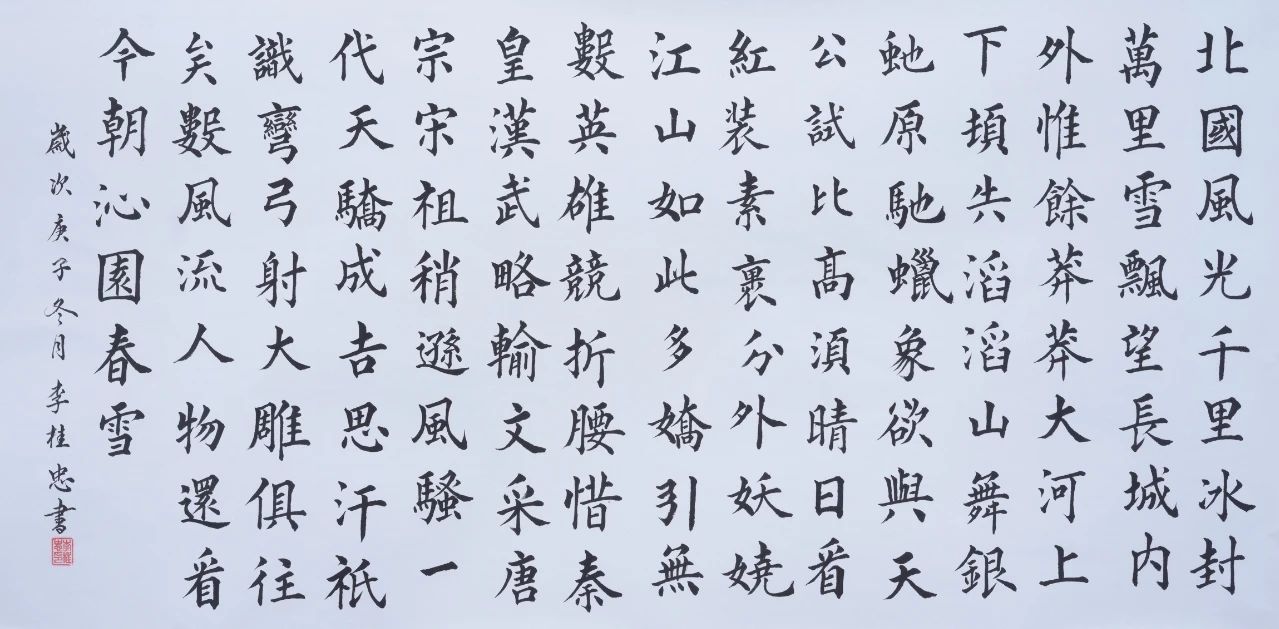 北國風光千里冰封
萬里雪飄望長城内
外惟餘莽莽大河上
下頓失滔滔山舞銀
虵原馳蠟象欲與天
公試比高須晴日看
紅装素裹分外妖嬈
江山如此多嬌引無
數英雄競折腰惜秦
皇漢武略輸文采唐
宗宋祖稍遜風騷一
代天驕成吉思汗祇
識彎弓射大雕俱往
矣數風流人物還看
今朝沁園春雪
歲次庚子冬月李桂忠書